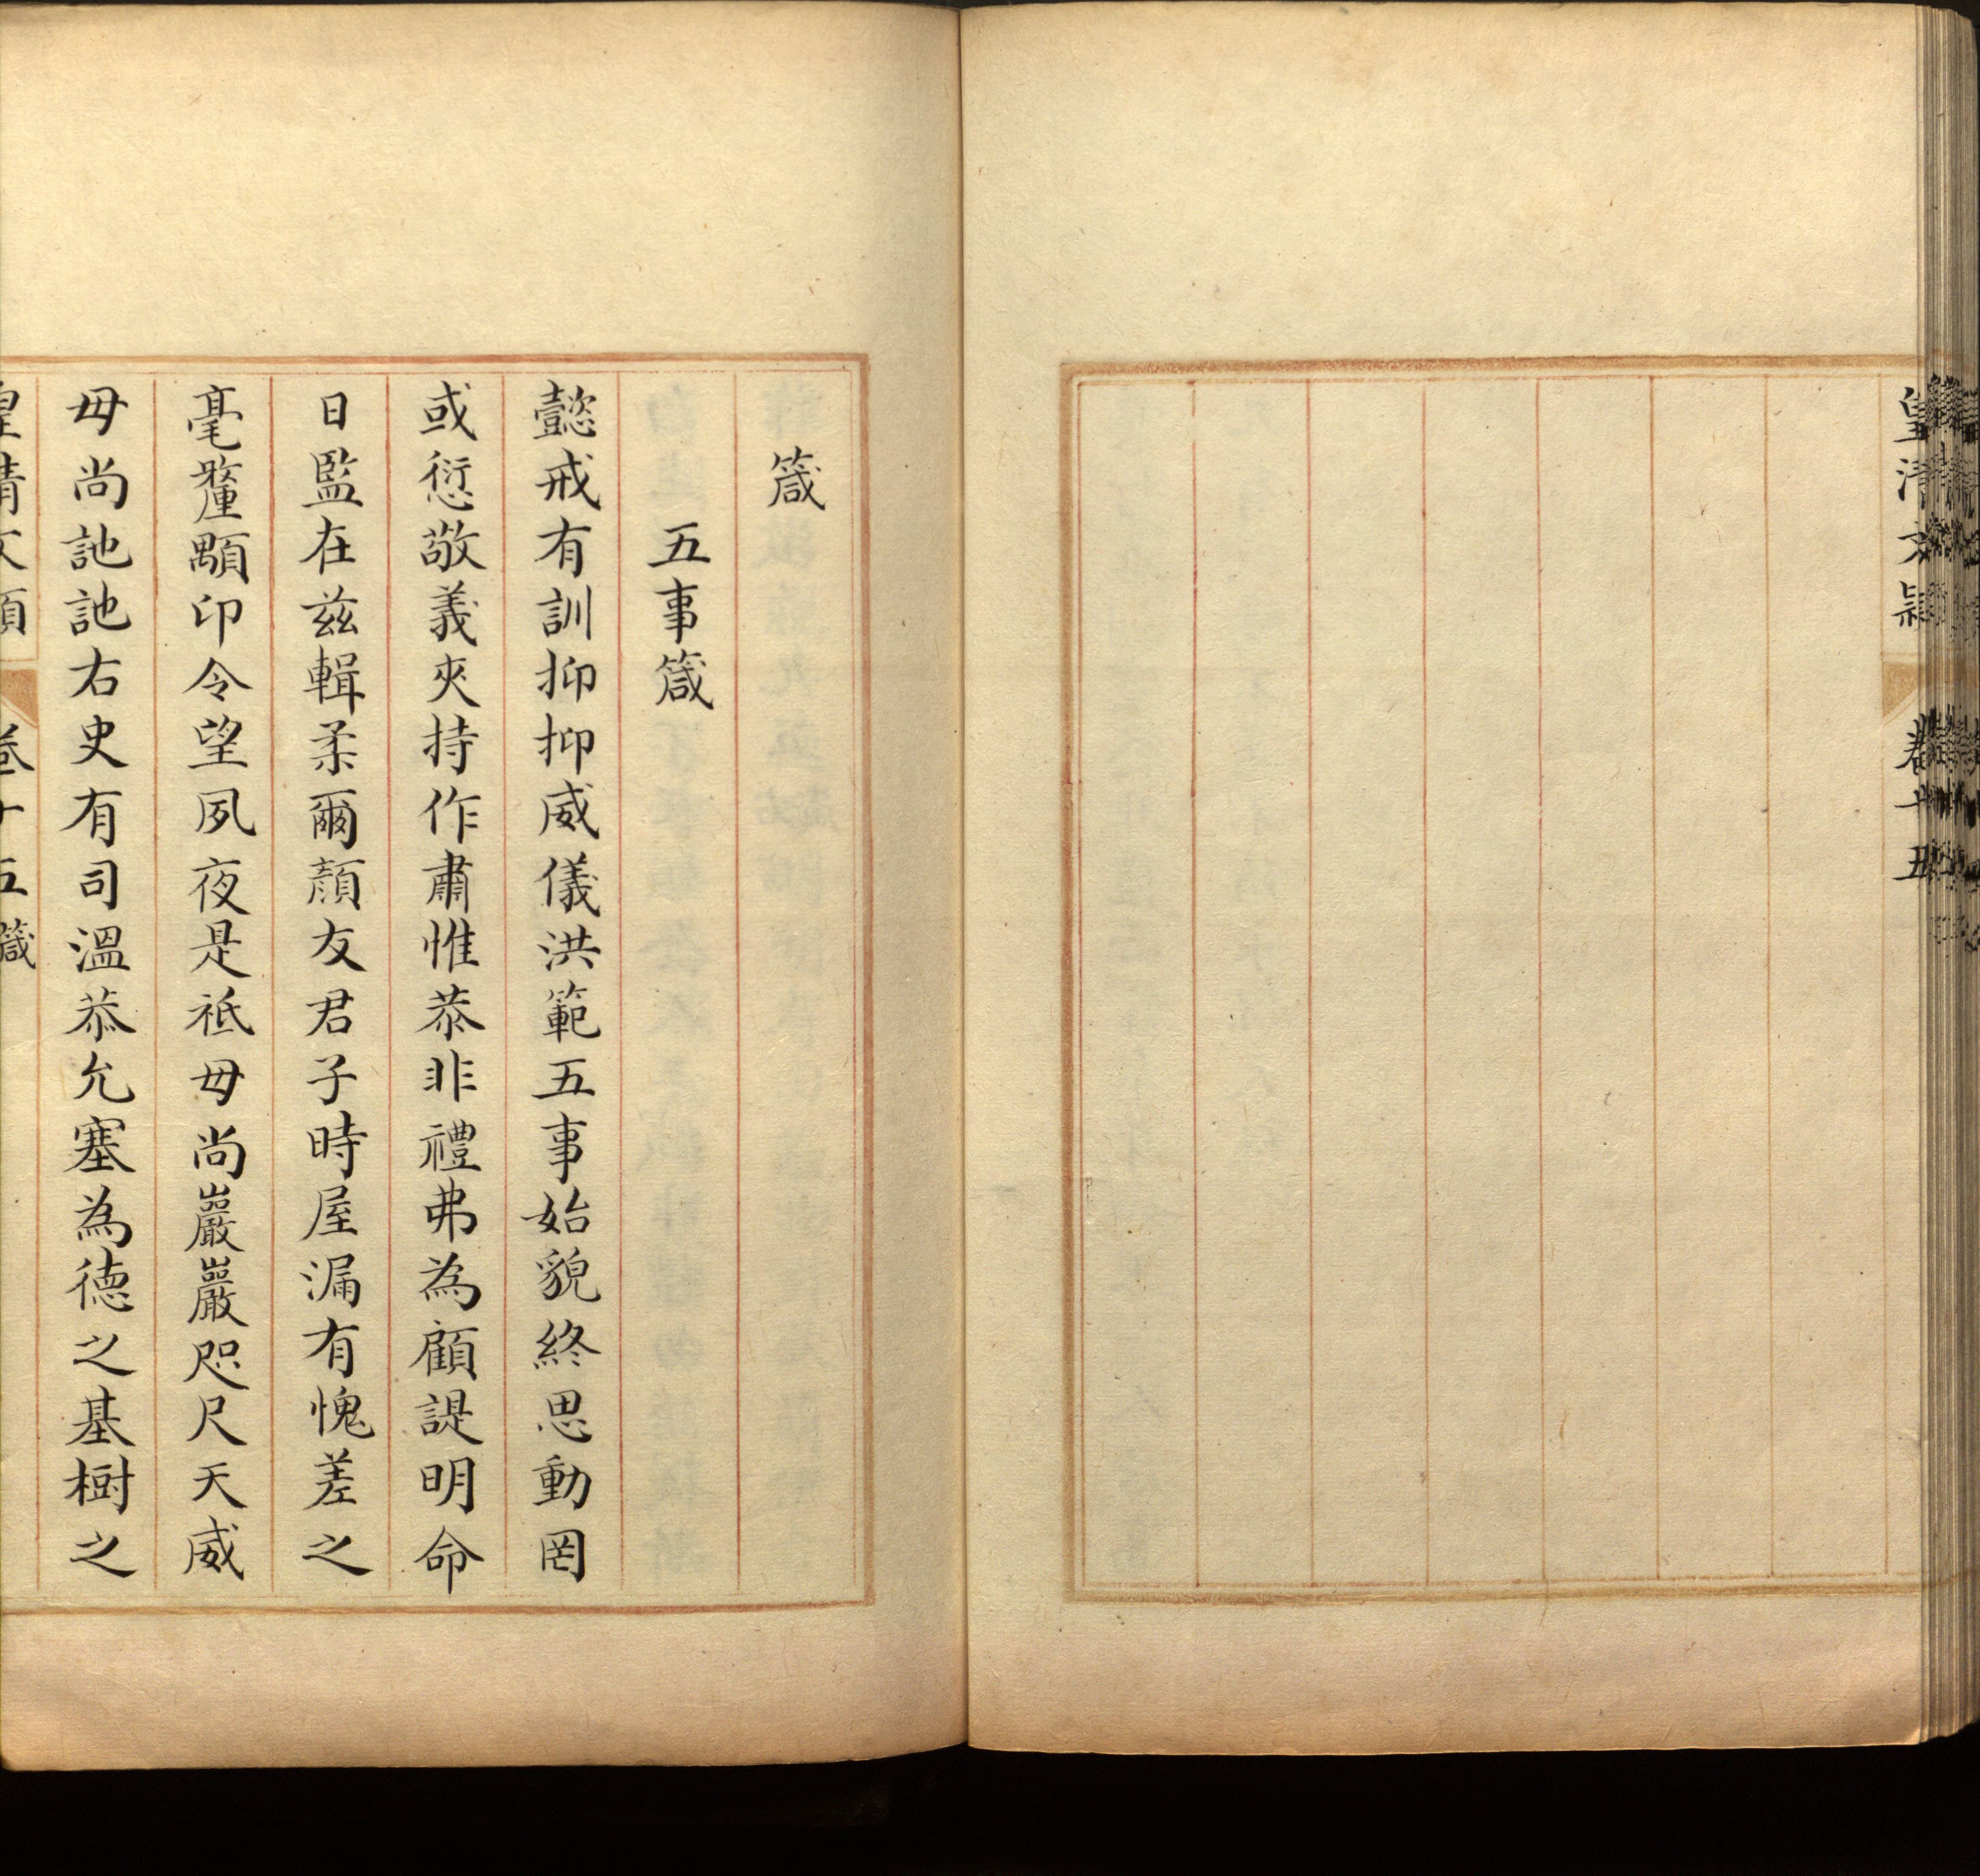 皇清文穎 卷十五
箴
五事箴
懿戒有訓抑抑威儀洪範五事始貌終思動罔
或愆敬義夾持作肅惟恭非禮弗為顧諟明命
日監在兹輯柔爾顔友君子時屋漏有愧差之
毫釐顒卬令望夙夜是祗毋尚巖巖咫尺天威
毋尚訑訑右史有司溫恭允塞為德之基樹之
皇清文穎 卷十五箴